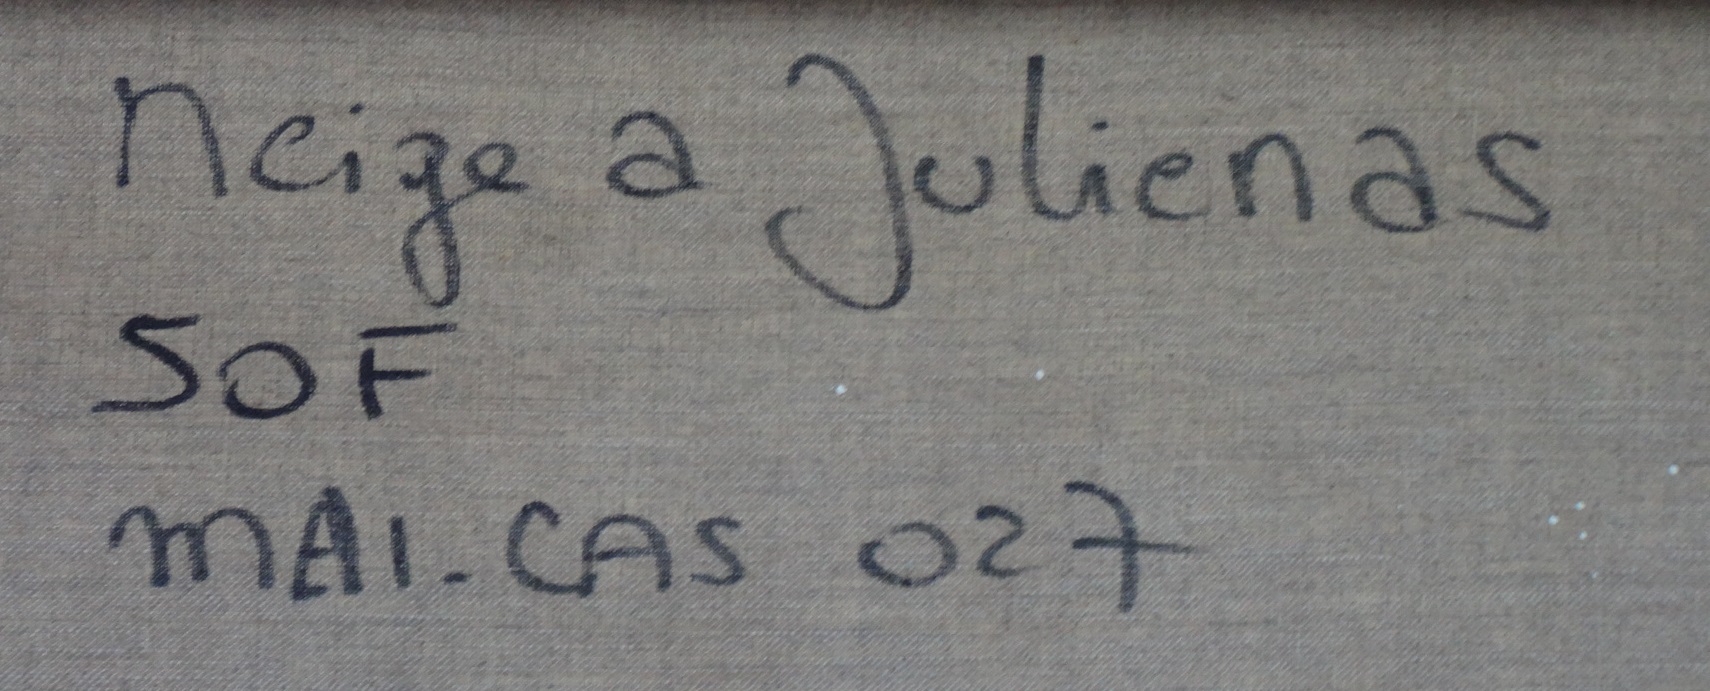 Neige a Julienas
SOF
MAI-CAS 027